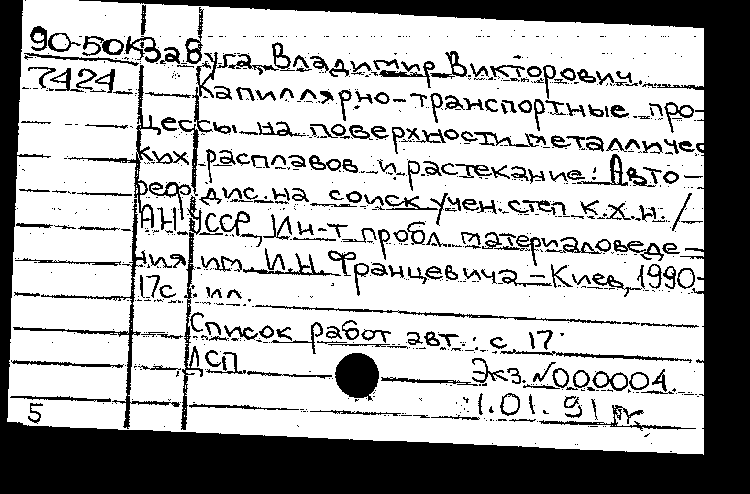 90-50К Забуга, Владимир Викторович.
7424 Капиллярно-транспортные про-
цессы на поверхности металличес
ких расплавов и растекание: Авто-
реф. дис. на соиск учен. степ к.х.н. /
АН УССР, Ин-т пробл. материаловеде-
ния им. И.Н. Францевича - Киев, 1990-
17с : ил.
Список работ авт.: с. 17
ДСП
Экз. №000004.
1.01.91
5